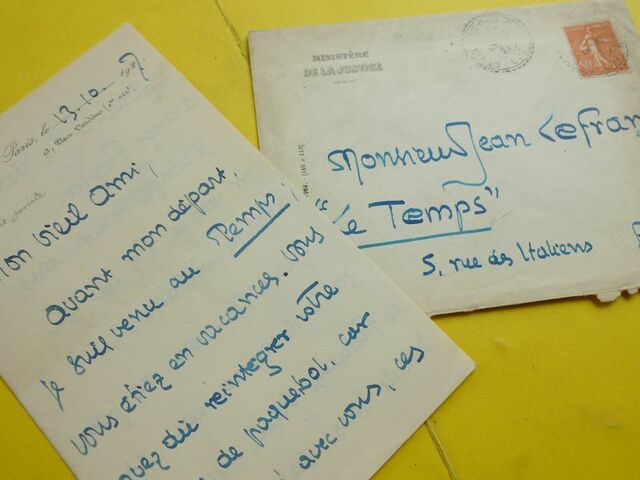 Paris, le 13.10.1927
3, Place Vendôme (1er arrt)
Mon vieil Ami,
avant mon départ,
je suis venu au Temps;
vous étiez en vacances. Vous
avez dû réintégrer votre
de paquebot, car
avec vous, ces
MINISTÈRE
DE LA JUSTICE
Monsieur Jean Lefran
"Le Temps"
5, rue des Italiens